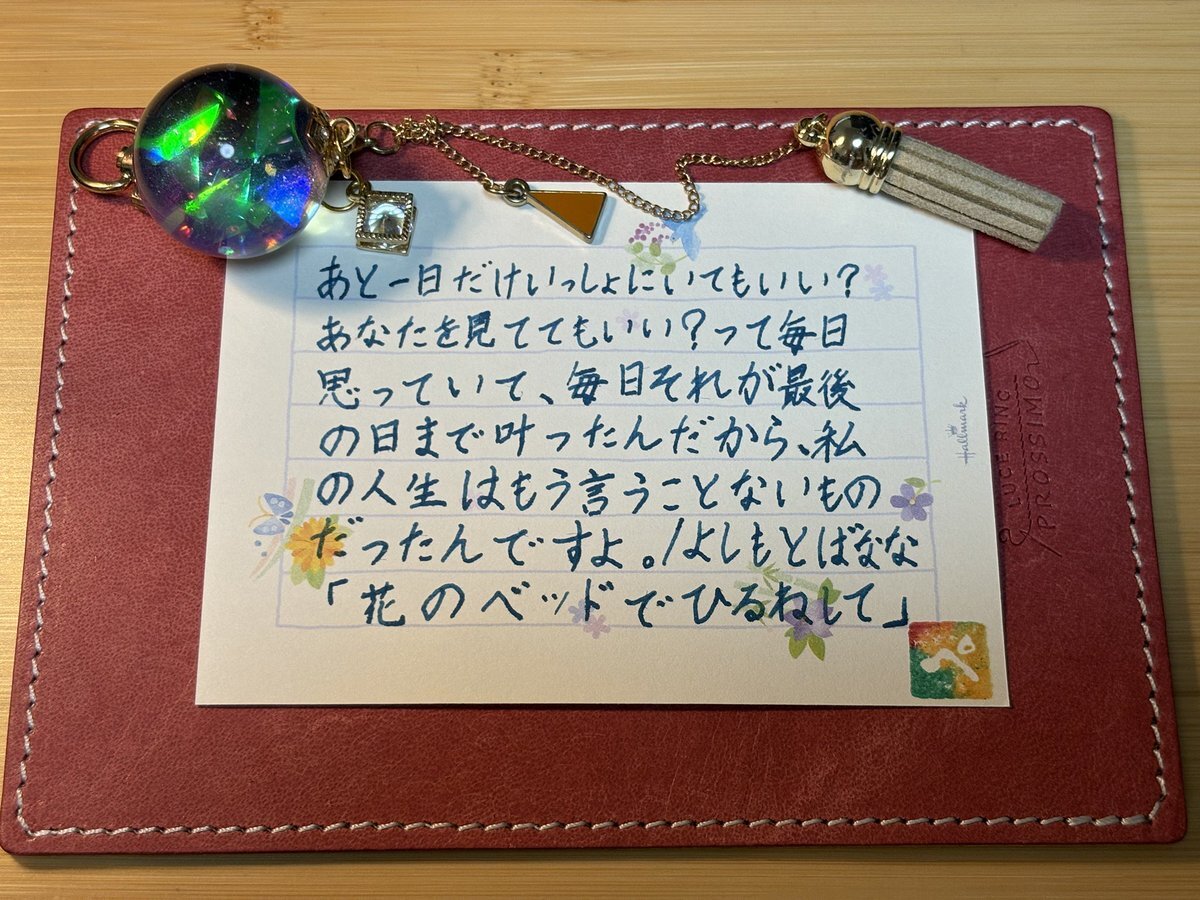 あと一日だけいっしょにいてもいい？
あなたを見ててもいい？って毎日
思っていて、毎日それが最後
の日まで叶ったんだから、私
の人生はもう言うことないもの
だったんですよ。/よしもとばなな
「花のベッドでひるねして」
ぺ
Hallmark
LUCERINO
PROSSIMO